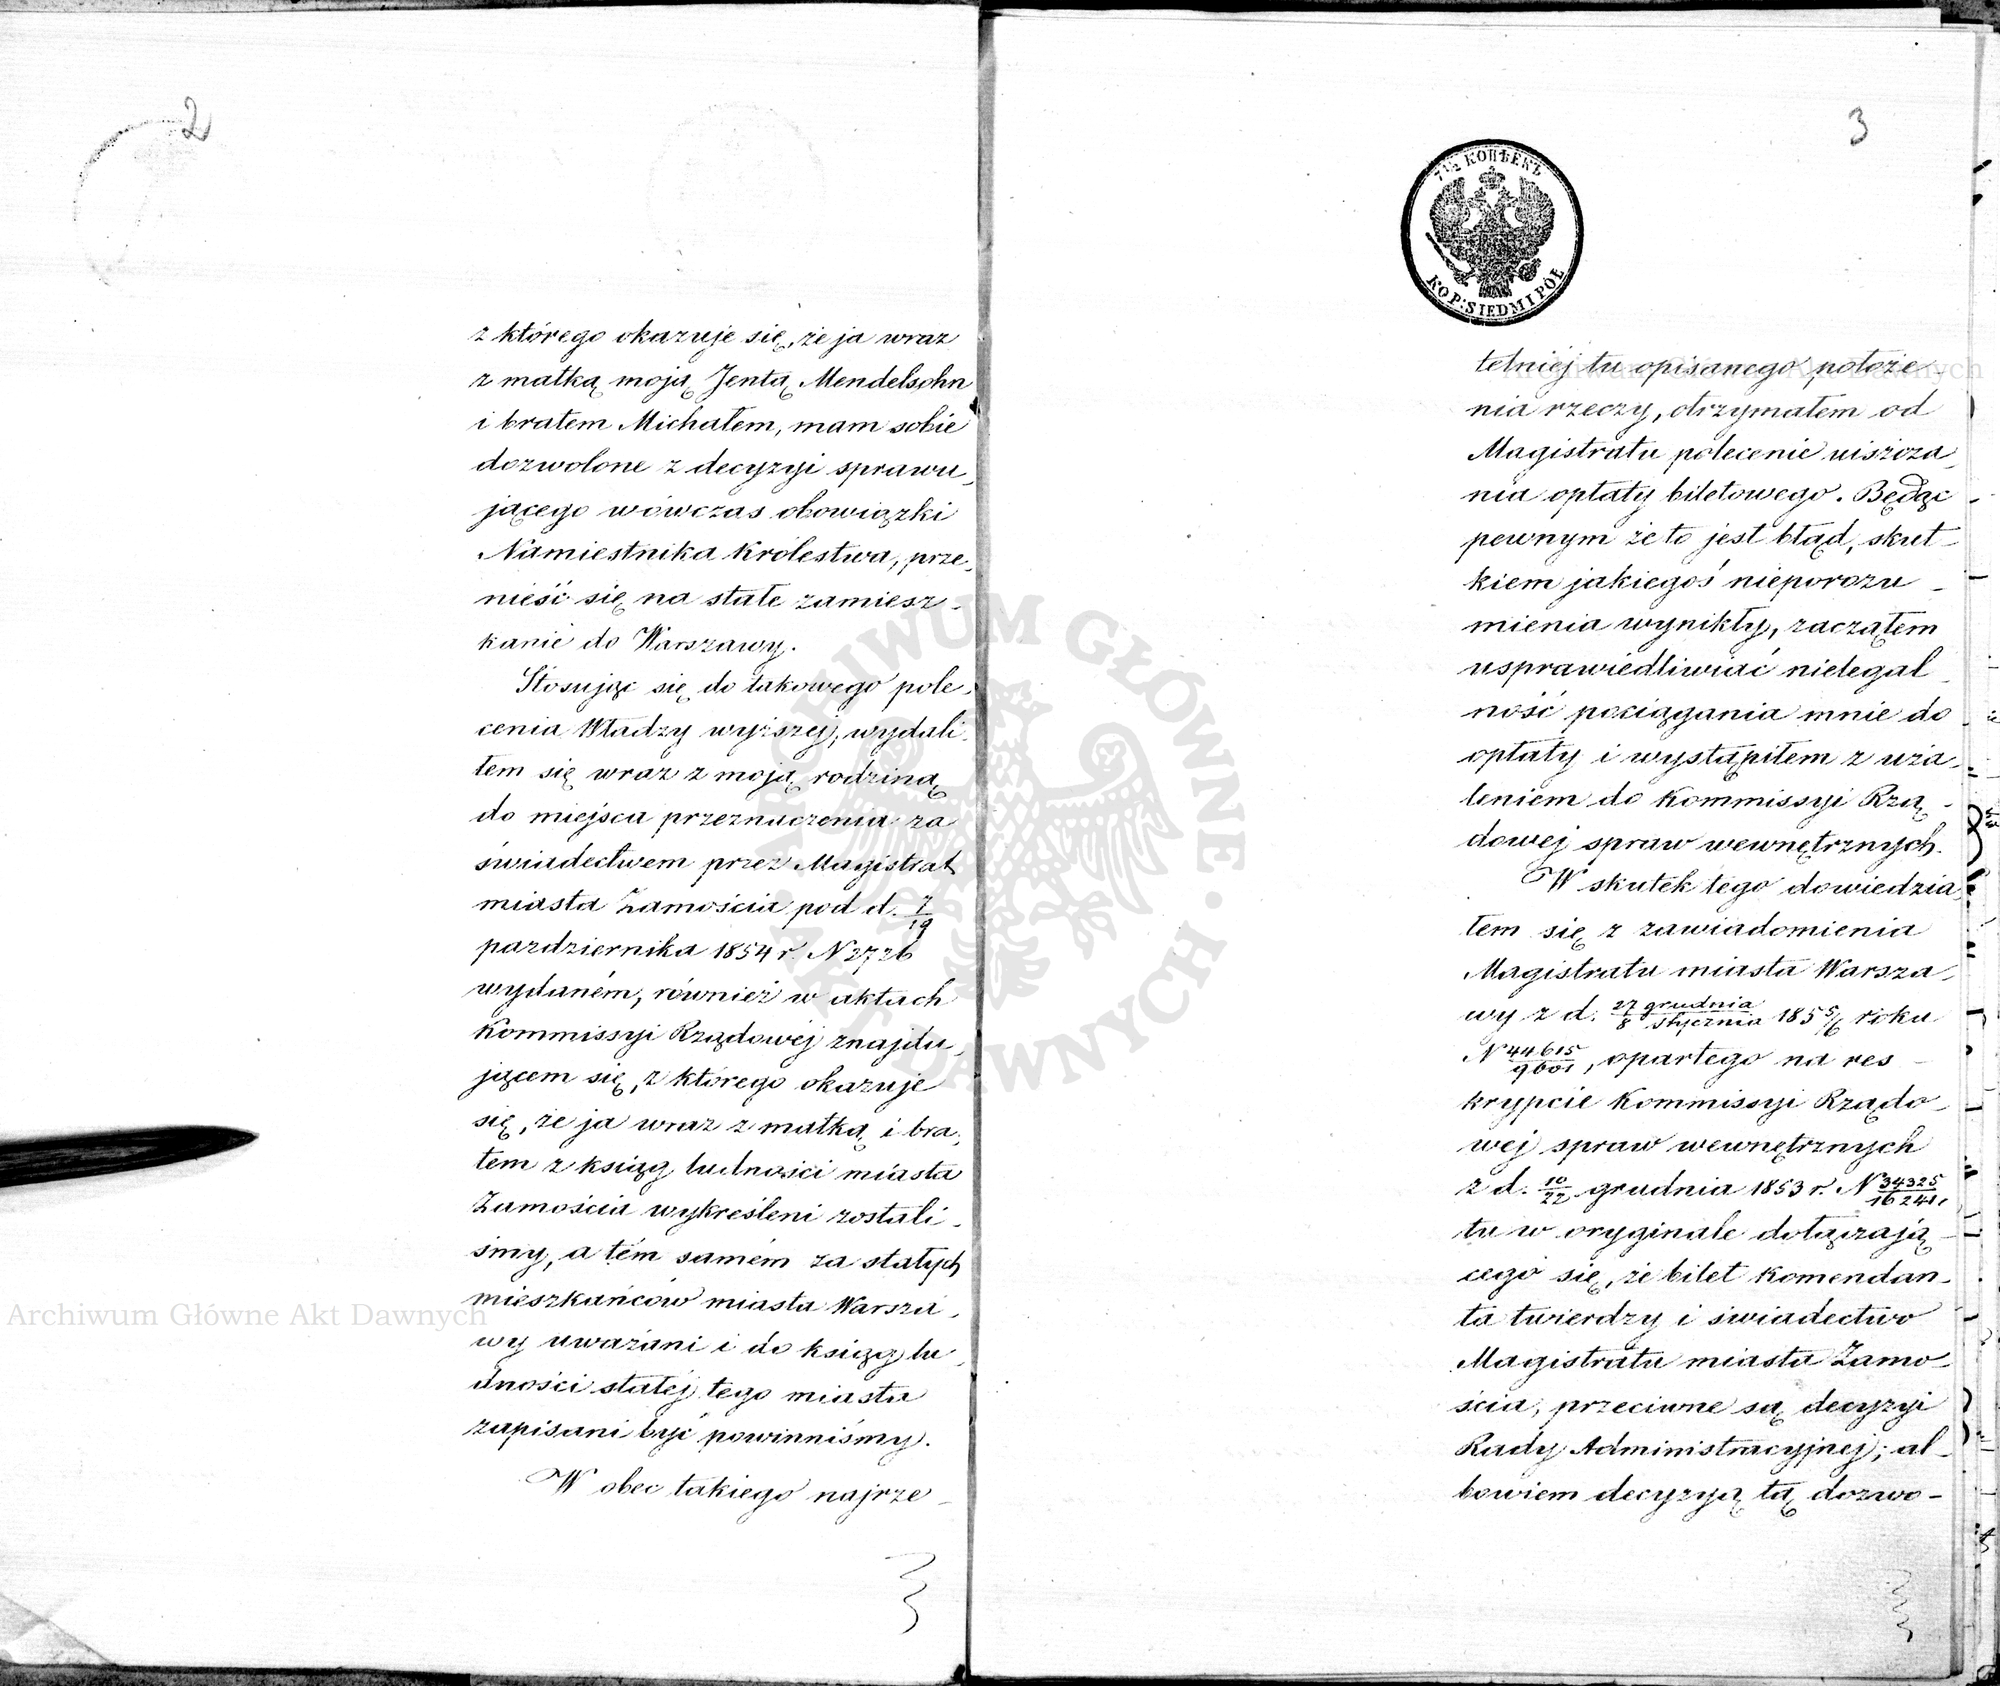 2
z którego okazuje się, że ja wraz
z matką moją Jentą Mendelsohn
i bratem Michałem, mam sobie
dozwolone z decyzyi sprawu„
jącego wówczas obowiązki
Namiestnika Królestwa, prze„
nieść się na stałe zamiesz„
kanie do Warszawy.
Stosując się do takowego pole„
cenia Władzy wyższej, wydali„
łem się wraz z moją rodziną
do miejsca przeznaczenia za
świadectwem przez Magistrat
miasta Zamościa pod d. 7/19
pazdziernika 1854 r. N 2726
wydaném, również w aktach
Kommissyi Rządowéj znajdu„
jącem się, z którego okazuje
się, że ja wraz z matką i bra„
tem z ksiąg ludności miasta
Zamościa wykreśleni zostali„
śmy, a tém samém za stałych
mieszkańców miasta Warsza„
wy uważani i do ksiąg lu„
dności stałéj tego miasta
zapisani być powinniśmy.
W obec takiego najrze„
3
7 1/2 КОПѢЕКЪ
KOP: SIEDM I PÓŁ
telniéj tu opisanego położe„
nia rzeczy, otrzymałem od
Magistratu polecenie uiszcza„
nia opłaty biletowego. Będąc
pewnym że to jest błąd, skut„
kiem jakiegoś nieporozu„
mienia wynikły, zacząłem
usprawiedliwiać nielegal„
ność pociągania mnie do
opłaty i wystąpiłem z uża„
leniem do Kommissyi Rzą„
dowej spraw wewnętrznych.
W skutek tego dowiedzia„
łem się z zawiadomienia
Magistratu miasta Warsza„
wy z d. 27 grudnia/8 stycznia 1855/6 roku
N 44615/9601, opartego na res„
krypcie Kommissyi Rządo„
wej spraw wewnętrznych
z d. 10/22 grudnia 1853 r. N 34325/16241,
tu w oryginale dołączają„
cego się, że bilet Komendan„
ta twierdzy i świadectwo
Magistratu miasta Zamo„
ścia, przeciwne są decyzyi
Rady Administracyjnej; al„
bowiem decyzyją tą dozwo„
Archiwum Główne Akt Dawnych
Archiwum Główne Akt Dawnych
ARCHIWUM GŁÓWNE AKT DAWNYCH